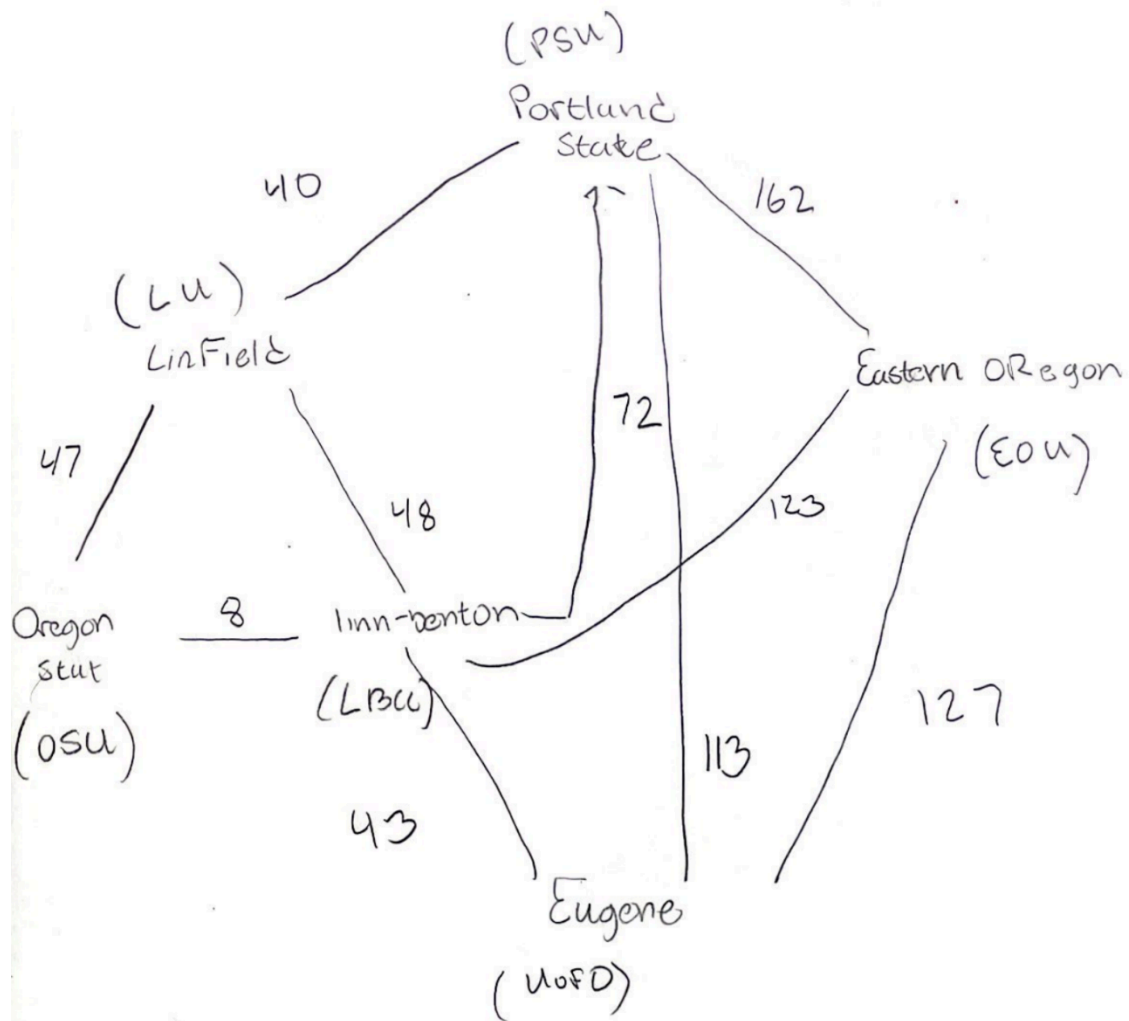 (PSU)
Portland
State
40
162
(LU)
LinField
Eastern ORegon
(EOU)
47
72
48
123
Oregon
stat
8
linn-benton
(LBCC)
(OSU)
127
113
43
Eugene
(UofO)